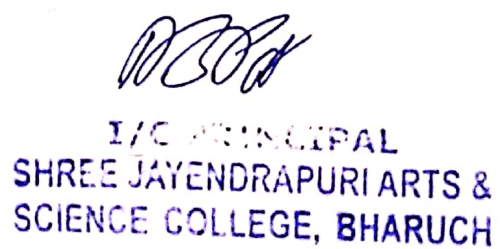 I/C PRINCIPAL
SHREE JAYENDRAPURI ARTS &
SCIENCE COLLEGE, BHARUCH